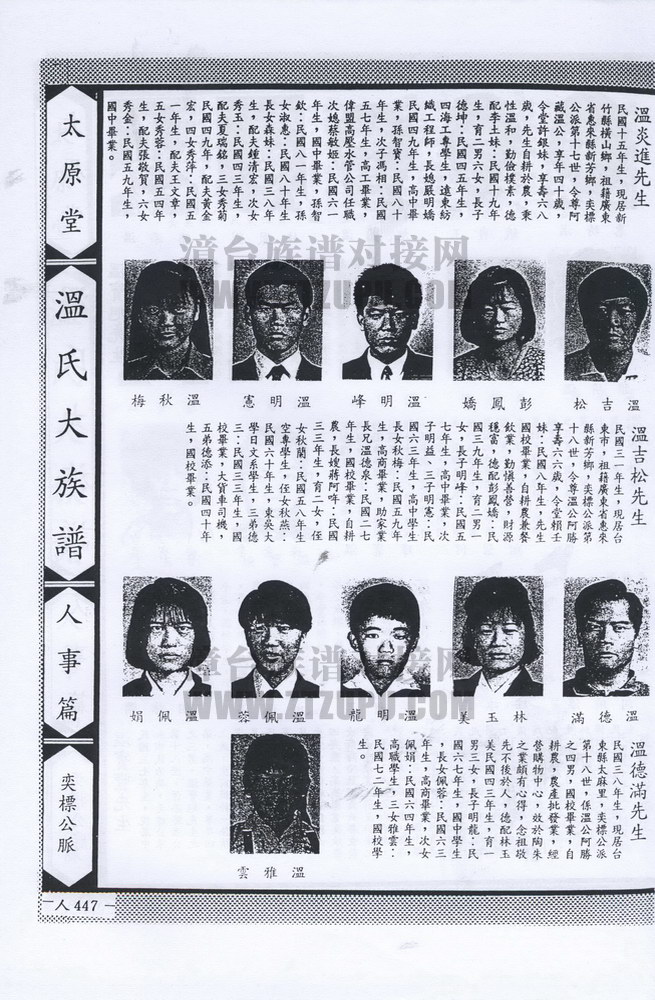 溫炎進先生
民國十五年生，現居新
竹縣橫山鄉，祖籍廣東
省惠來縣新芳鄉，奕標
公派第十七世，令尊阿
藏溫公，享年四十歲，
令堂許銀妹，享壽六八
歲，先生自耕於農，秉
性溫和，勤儉樸素，德
配李土妹：民國十九年
生，育二男六女，長子
德坤：民國四五年生，
四海工專學生，遠東紡
織工程師，長媳嚴明嬌
民國四九年生，高中畢
業，孫智寶：民國八十
年生，次子馮相：民國
五七年生，高工畢業，
偉盟高壓水管公司任職
次媳蔡敏姬：民國六一
年生，國中畢業，孫智
欽：民國八一年生，孫
女淑惠：民國八十年生
長女森妹：民國三八年
生，配夫鍾清宏，次女
秀玉：民國四三年生，
配夫夏瑞銘，三女秀菊
民國四九年，配夫黃金
宏，四女秀萍：民國五
一年生，配夫王文章，
五女秀蓉：民國五四年
生，配夫張敬賀，六女
秀金：民國五九年生，
國中畢業。
溫吉松
彭鳳嬌
溫明峰
溫明憲
溫秋梅
溫吉松先生
民國三一年生，現居台
東市，祖籍廣東省惠來
縣新芳鄉，奕標公派第
十八世，令尊溫公阿勝
享壽六六歲，令堂賴壬
妹：民國八年生，先生
國校畢業，自耕農兼餐
飲業，勤慎善營，財源
穩富，德配彭鳳嬌：民
國三九年生，育二男一
女，長子明峰：民國五
七年生，高中畢業，次
子明益、三子明憲：民
國六三年生，高中學生
長女秋梅：民國五九年
生，高商畢業，助家業
長兄溫德泉：民國二七
年生，國校畢業，自耕
農，長嫂蔣阿昨：民國
三三年生，育二女，侄
女秋蘭：民國五八年生
空專學生，侄女秋燕：
民國六十年生，東吳大
學日文系學生，三弟德
三：民國三三年生，國
校畢業，大貨車司機，
五弟德添：民國四十年
生，國校畢業。
溫德滿
林玉美
溫明龍
溫佩蓉
溫佩娟
溫德滿先生
民國三八年生，現居台
東縣太麻里，奕標公派
第十八世，係溫公阿勝
之四男，國校畢業，自
耕農，農產批發業，經
營購物中心，效於陶朱
之業頗有心得，念祖敬
先不後於人，德配林玉
美民國四三年生，育一
男三女，長子明龍：民
國六七年生，國中學生
，長女佩蓉：民國六三
年生，高商畢業，次女
佩娟：民國六四年生，
高職學生，三女雅雲：
民國七二年生，國校學
生。
溫雅雲
太原堂
溫氏大族譜
人事篇
奕標公脈
人 447
漳台族谱对接网
WWW.ZTZUPU.COM
漳台族谱对接网
WWW.ZTZUPU.COM